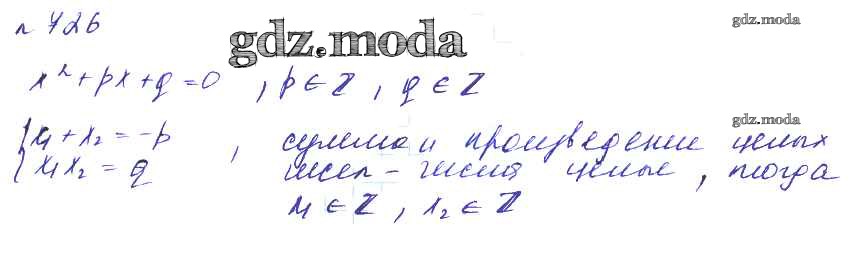 n 726
gdz.moda
gdz.moda
x² + px + q = 0 , p ∈ Z , q ∈ Z
gdz.moda
{ x₁ + x₂ = -p , сумма и произведение целых
x₁x₂ = q чисел - числа целые, тогда
x₁ ∈ Z , x₂ ∈ Z